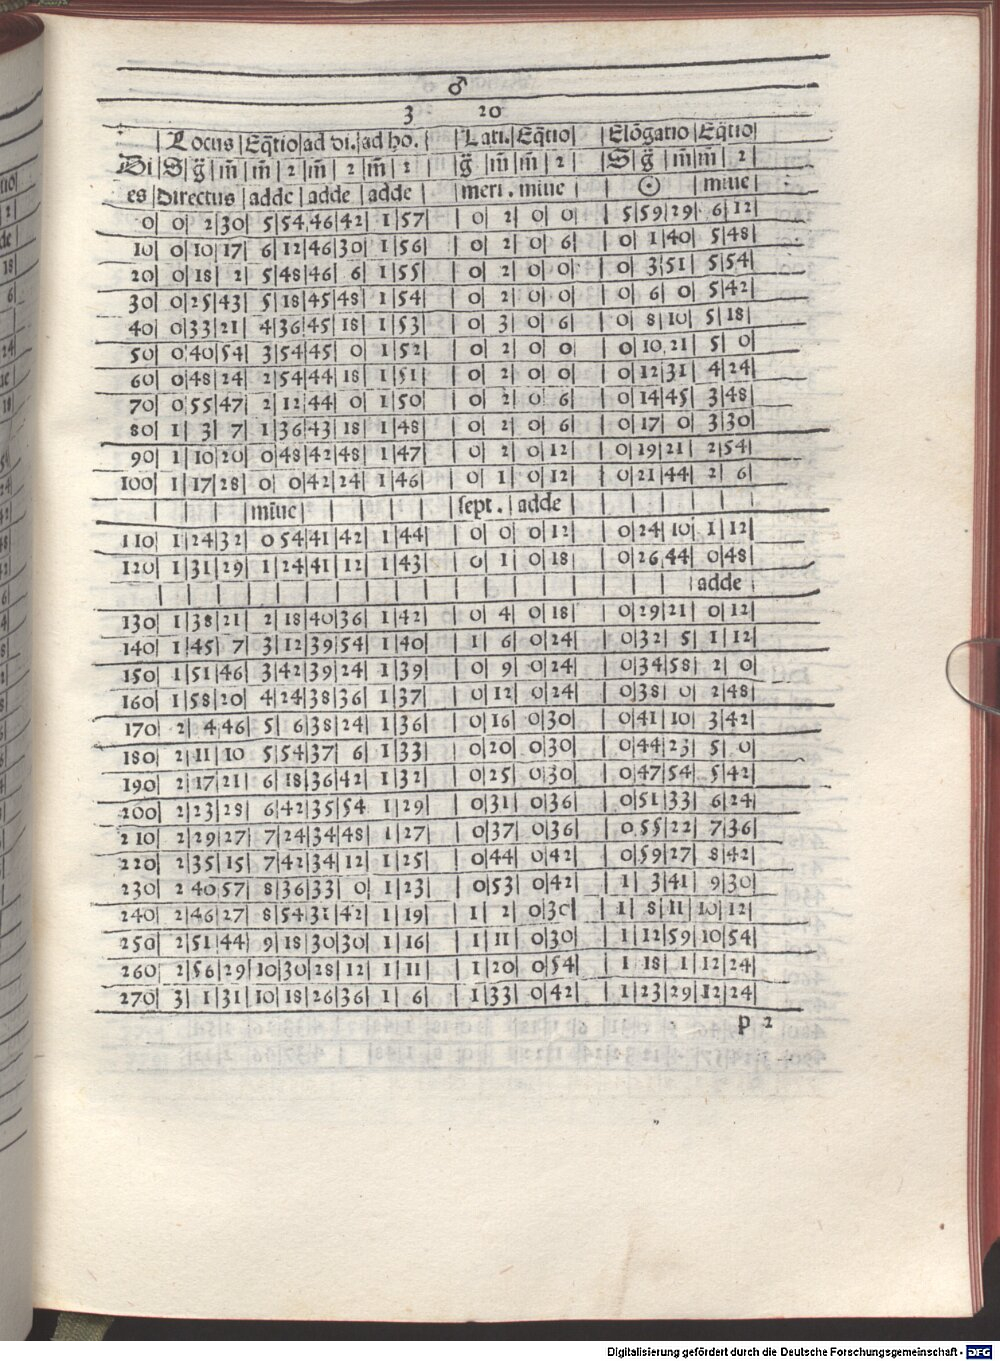 ♂
3 20
Locus | Eq̃tio | ad di. | ad ho. | Lati. | Eq̃tio | Elõgatio | Eq̃tio
Di | S | g̃ | m̃ | m̃ | 2 | m̃ | 2 | m̃ | 2 | g̃ | m̃ | m̃ | 2 | S | g̃ | m̃ | m̃ | 2
es | Directus | adde | adde | adde | meri. | miue | ☉ | miue
0 | 0 | 2 | 30 | 5 | 54 | 46 | 42 | 1 | 57 | 0 | 2 | 0 | 0 | 5 | 59 | 29 | 6 | 12
10 | 0 | 10 | 17 | 6 | 12 | 46 | 30 | 1 | 56 | 0 | 2 | 0 | 6 | 0 | 1 | 40 | 5 | 48
20 | 0 | 18 | 2 | 5 | 48 | 46 | 6 | 1 | 55 | 0 | 2 | 0 | 0 | 0 | 3 | 51 | 5 | 54
30 | 0 | 25 | 43 | 5 | 18 | 45 | 48 | 1 | 54 | 0 | 2 | 0 | 0 | 0 | 6 | 0 | 5 | 42
40 | 0 | 33 | 21 | 4 | 36 | 45 | 18 | 1 | 53 | 0 | 3 | 0 | 6 | 0 | 8 | 10 | 5 | 18
50 | 0 | 40 | 54 | 3 | 54 | 45 | 0 | 1 | 52 | 0 | 2 | 0 | 0 | 0 | 10 | 21 | 5 | 0
60 | 0 | 48 | 24 | 2 | 54 | 44 | 18 | 1 | 51 | 0 | 2 | 0 | 0 | 0 | 12 | 31 | 4 | 24
70 | 0 | 55 | 47 | 2 | 12 | 44 | 0 | 1 | 50 | 0 | 2 | 0 | 6 | 0 | 14 | 45 | 3 | 48
80 | 1 | 3 | 7 | 1 | 36 | 43 | 18 | 1 | 48 | 0 | 2 | 0 | 6 | 0 | 17 | 0 | 3 | 30
90 | 1 | 10 | 20 | 0 | 48 | 42 | 48 | 1 | 47 | 0 | 2 | 0 | 12 | 0 | 19 | 21 | 2 | 54
100 | 1 | 17 | 28 | 0 | 0 | 42 | 24 | 1 | 46 | 0 | 1 | 0 | 12 | 0 | 21 | 44 | 2 | 6
miue | sept. | adde
110 | 1 | 24 | 32 | 0 | 54 | 41 | 42 | 1 | 44 | 0 | 0 | 0 | 12 | 0 | 24 | 10 | 1 | 12
120 | 1 | 31 | 29 | 1 | 24 | 41 | 12 | 1 | 43 | 0 | 1 | 0 | 18 | 0 | 26 | 44 | 0 | 48
adde
130 | 1 | 38 | 21 | 2 | 18 | 40 | 36 | 1 | 42 | 0 | 4 | 0 | 18 | 0 | 29 | 21 | 0 | 12
140 | 1 | 45 | 7 | 3 | 12 | 39 | 54 | 1 | 40 | 1 | 6 | 0 | 24 | 0 | 32 | 5 | 1 | 12
150 | 1 | 51 | 46 | 3 | 42 | 39 | 24 | 1 | 39 | 0 | 9 | 0 | 24 | 0 | 34 | 58 | 2 | 0
160 | 1 | 58 | 20 | 4 | 24 | 38 | 36 | 1 | 37 | 0 | 12 | 0 | 24 | 0 | 38 | 0 | 2 | 48
170 | 2 | 4 | 46 | 5 | 6 | 38 | 24 | 1 | 36 | 0 | 16 | 0 | 30 | 0 | 41 | 10 | 3 | 42
180 | 2 | 11 | 10 | 5 | 54 | 37 | 6 | 1 | 33 | 0 | 20 | 0 | 30 | 0 | 44 | 23 | 5 | 0
190 | 2 | 17 | 21 | 6 | 18 | 36 | 42 | 1 | 32 | 0 | 25 | 0 | 30 | 0 | 47 | 54 | 5 | 42
200 | 2 | 23 | 28 | 6 | 42 | 35 | 54 | 1 | 29 | 0 | 31 | 0 | 36 | 0 | 51 | 33 | 6 | 24
210 | 2 | 29 | 27 | 7 | 24 | 34 | 48 | 1 | 27 | 0 | 37 | 0 | 36 | 0 | 55 | 22 | 7 | 36
220 | 2 | 35 | 15 | 7 | 42 | 34 | 12 | 1 | 25 | 0 | 44 | 0 | 42 | 0 | 59 | 27 | 8 | 42
230 | 2 | 40 | 57 | 8 | 36 | 33 | 0 | 1 | 23 | 0 | 53 | 0 | 42 | 1 | 3 | 41 | 9 | 30
240 | 2 | 46 | 27 | 8 | 54 | 31 | 42 | 1 | 19 | 1 | 2 | 0 | 30 | 1 | 8 | 11 | 10 | 12
250 | 2 | 51 | 44 | 9 | 18 | 30 | 30 | 1 | 16 | 1 | 11 | 0 | 30 | 1 | 12 | 59 | 10 | 54
260 | 2 | 56 | 29 | 10 | 30 | 28 | 12 | 1 | 11 | 1 | 20 | 0 | 54 | 1 | 18 | 1 | 12 | 24
270 | 3 | 1 | 31 | 10 | 18 | 26 | 36 | 1 | 6 | 1 | 33 | 0 | 42 | 1 | 23 | 29 | 12 | 24
p 2
Digitalisierung gefördert durch die Deutsche Forschungsgemeinschaft - DFG